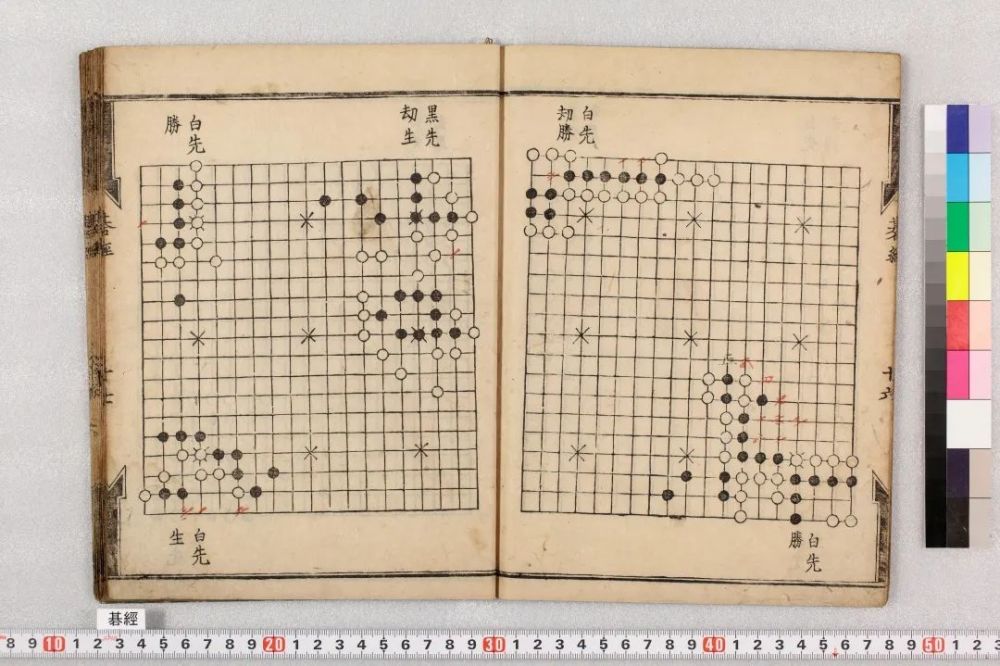 白先
刼勝
白先
勝
黒先
刼生
白先
勝
白先
生
碁經
8 9 10 1 2 3 4 5 6 7 8 9 20 1 2 3 4 5 6 7 8 9 30 1 2 3 4 5 6 7 8 9 40 1 2 3 4 5 6 7 8 9 50 1 2